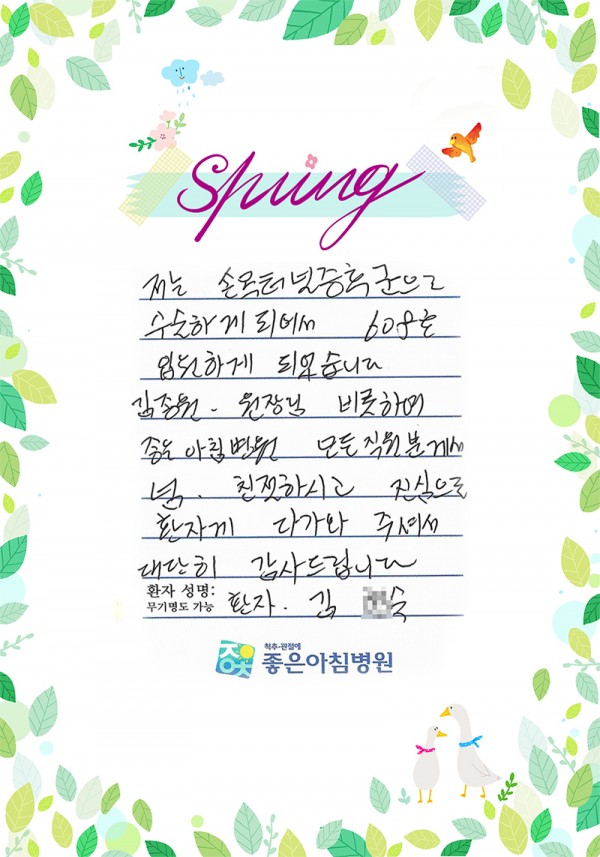 Spring
저는 손목터널증후군으로
수술하게 되어서 608호
입원하게 되었습니다
김종원. 원장님 비롯하여
좋은아침병원 모든직원분께서
넘. 친절하시고 진심으로
환자게 다가와 주셔서
대단히 감사드립니다
환자 성명: 환자. 김 숙
무기명도 가능
척추·관절에
좋은아침병원